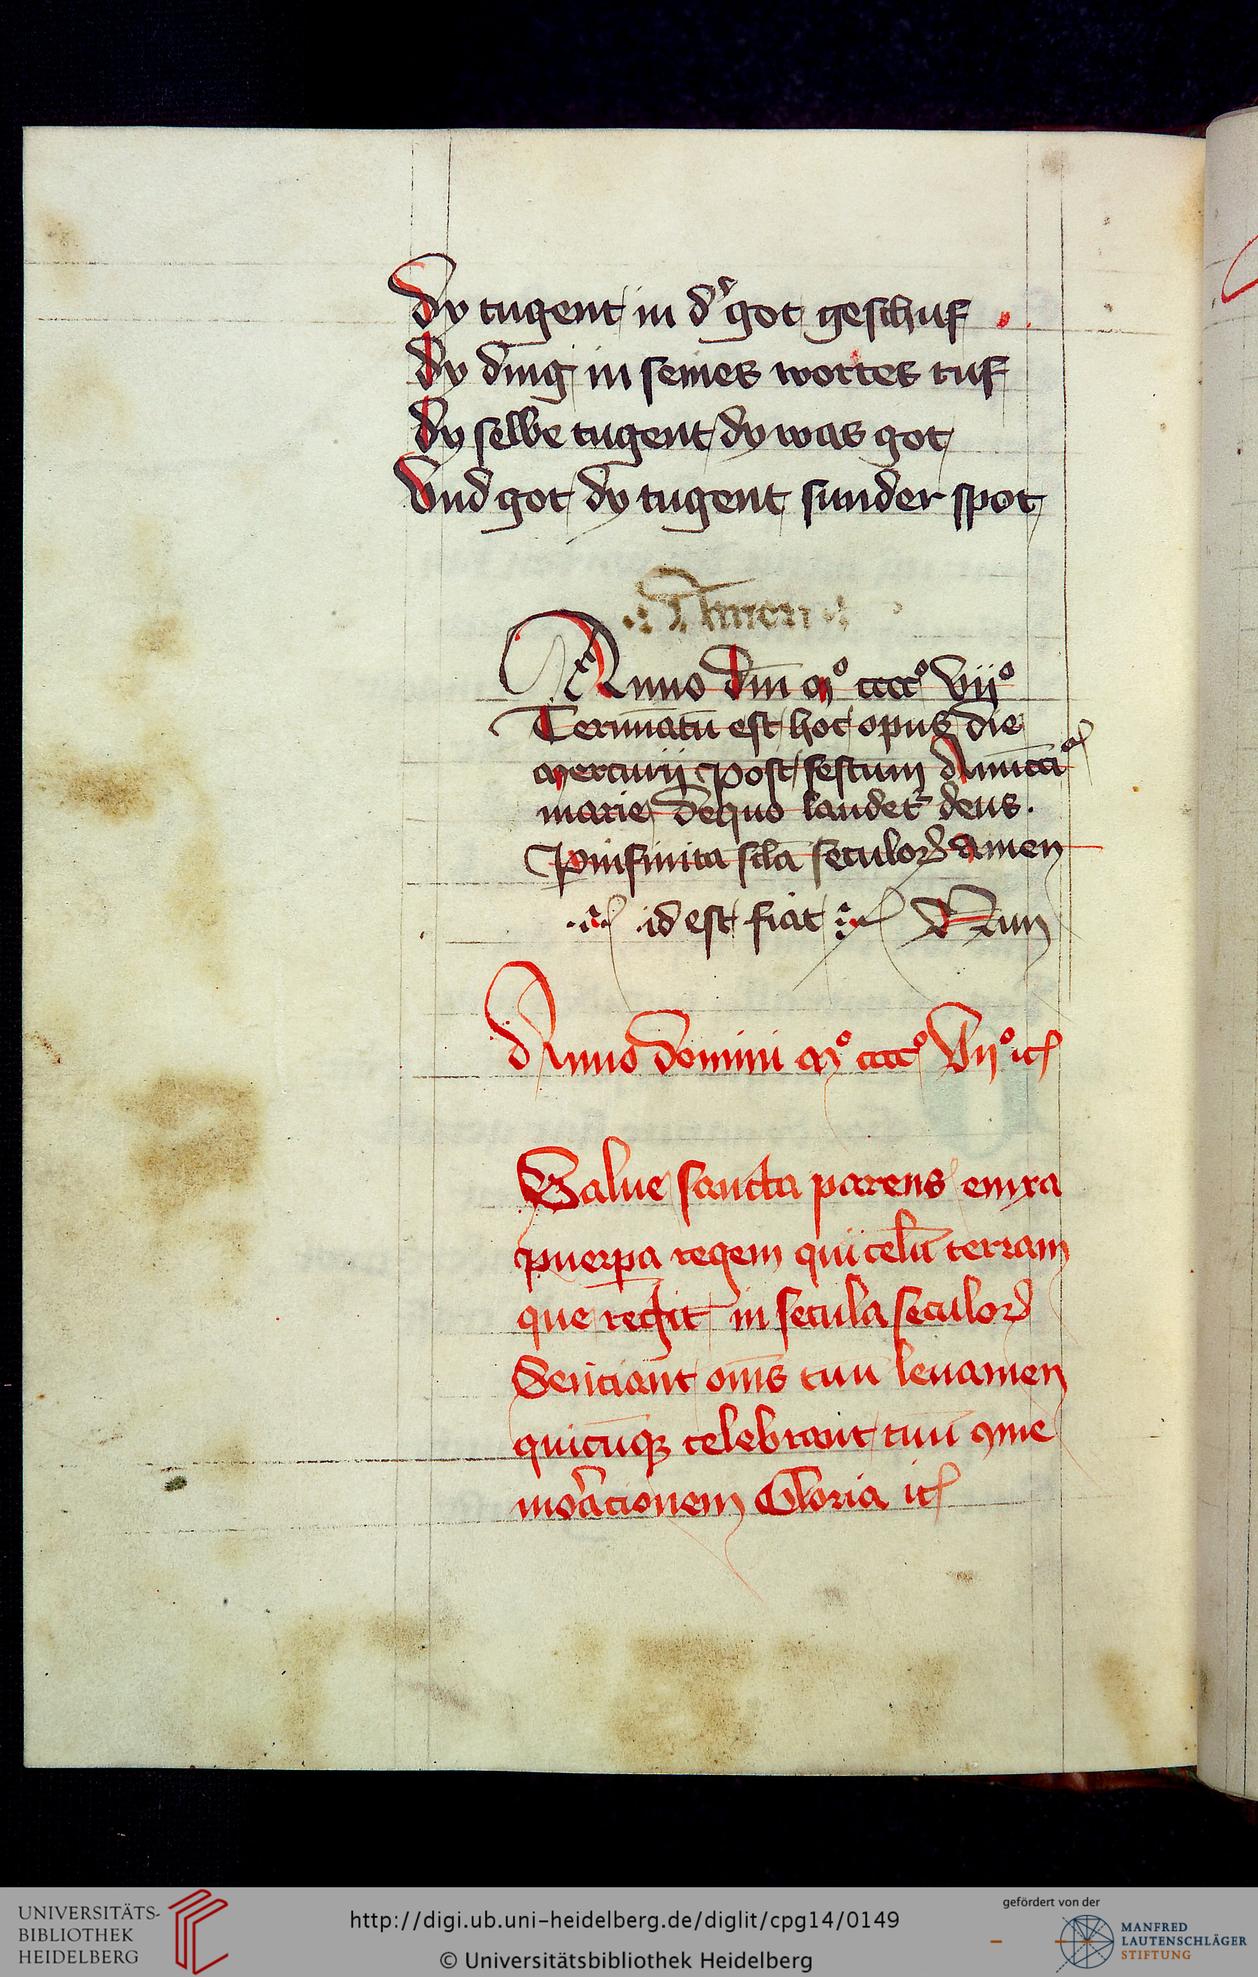 dy tugent in dˀ got geschuf
dy ding in seines wortes ruf
dy selbe tugent dy was got
Vnd got dy tugent sunder spot
Amen
Anno dm̄ mº ccccº Vijº
Terminatū est hoc opus die
mercurij post festum Annūcciōis
marie de quo laudetˀ deus.
ꝑ infinita scl̄a seculoꝝ amen
id est fiat
Anno domini mº ccccº Vijº ꝛc
Salue sancta parens enixa
puerꝑa regem qui celū terram
que regit in secula seculoꝝ
Senciant om̄s tuū leuamen
quicūqꝫ celebrant tuū ꝯme
moracionem Gloria ꝛc
UNIVERSITÄTS-
BIBLIOTHEK
HEIDELBERG
http://digi.ub.uni-heidelberg.de/diglit/cpg14/0149
© Universitätsbibliothek Heidelberg
gefördert von der
MANFRED
LAUTENSCHLÄGER
STIFTUNG